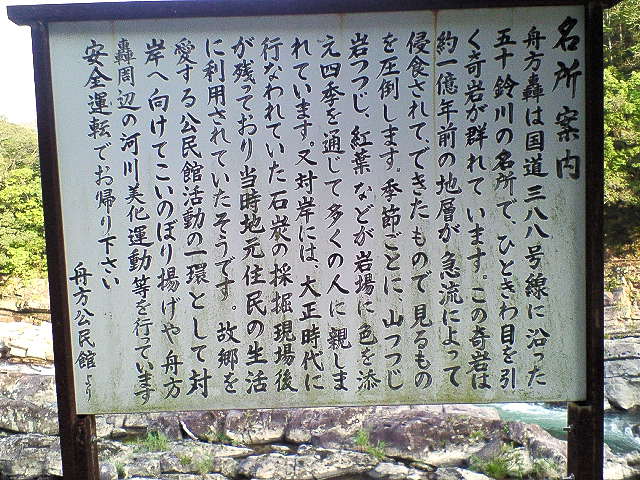 名所案内
舟方轟は国道三八八号線に沿った
五十鈴川の名所で、ひときわ目を引
く奇岩が群れています。この奇岩は
約一億年前の地層が急流によって
侵食されてできたもので見るもの
を圧倒します。季節ごとに、山つつじ
岩つつじ、紅葉などが岩場に色を添
え四季を通じて多くの人に親しま
れています。又対岸には、大正時代に
行なわれていた石炭の採掘現場後
が残っており当時地元住民の生活
に利用されていたそうです。故郷を
愛する公民館活動の一環として対
岸へ向けてこいのぼり揚げや舟方
轟周辺の河川美化運動等を行っています
安全運転でお帰り下さい
舟方公民館より